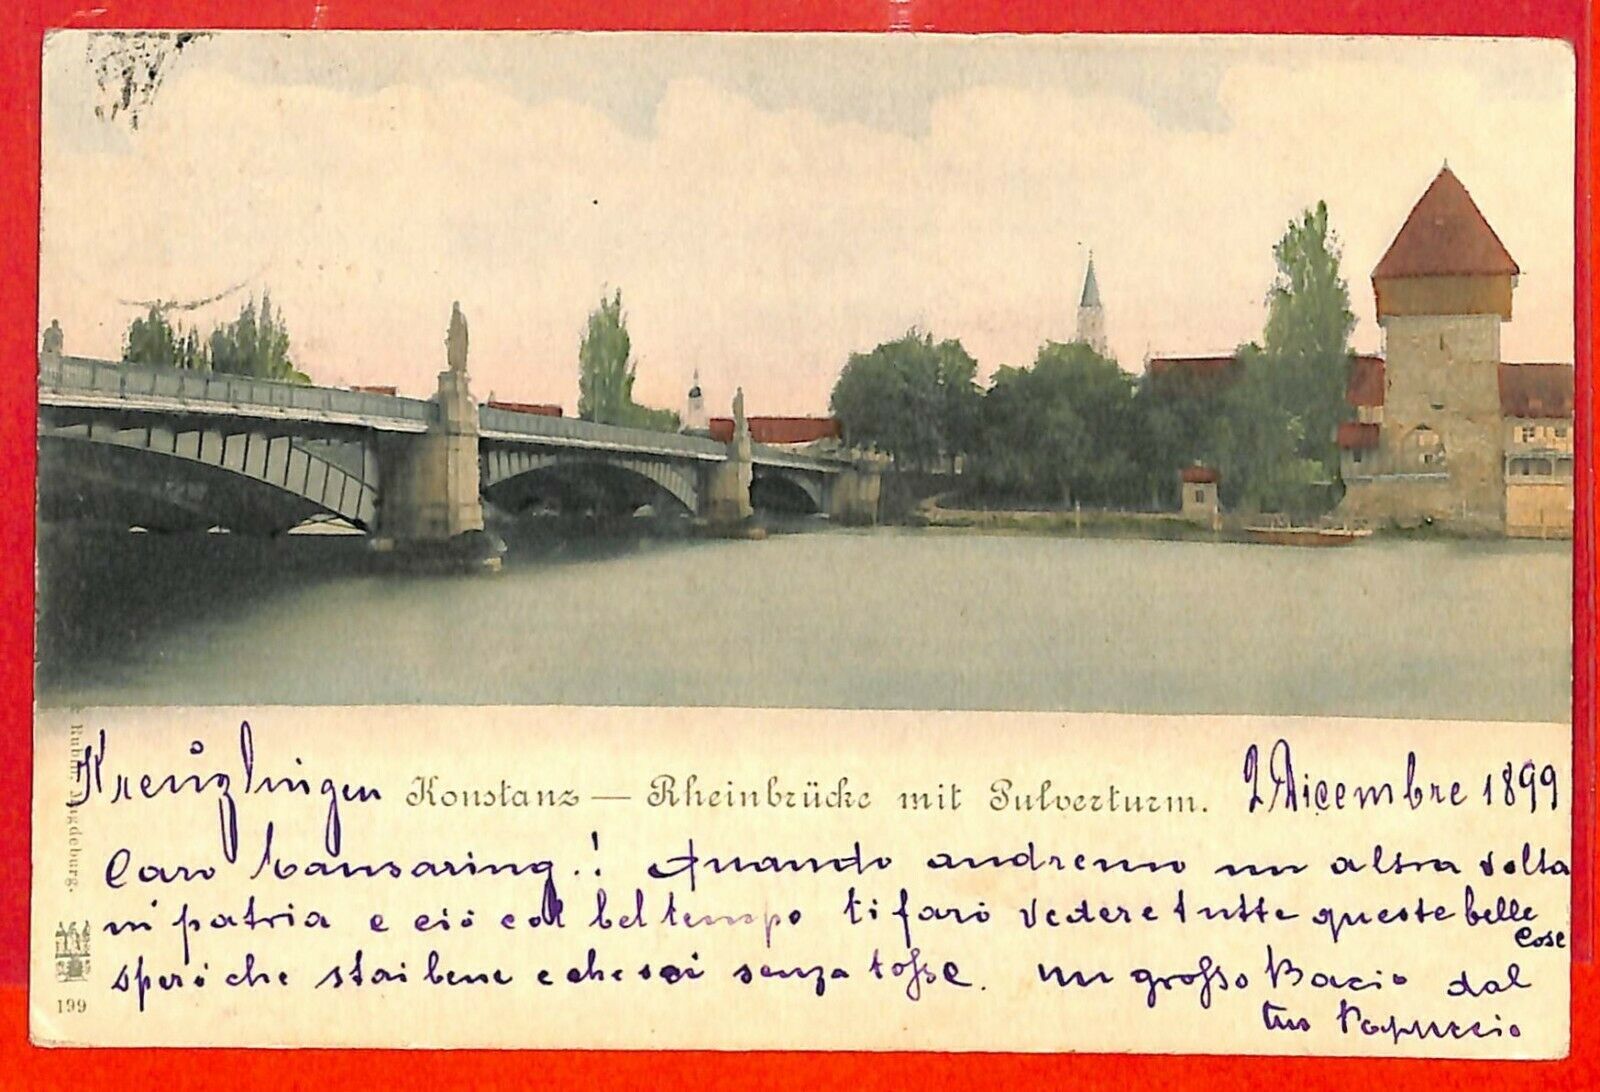 Kreuzlingen Konstanz — Rheinbrücke mit Pulverturm. 2 Dicembre 1899
Caro ! Quando andremo un altra volta
in patria e ciò col bel tempo ti farò vedere tutte queste belle
cose
sperò che stai bene e che sei senza tosse. Un grosso Bacio dal
tuo Papuccio
Magdeburg.
199